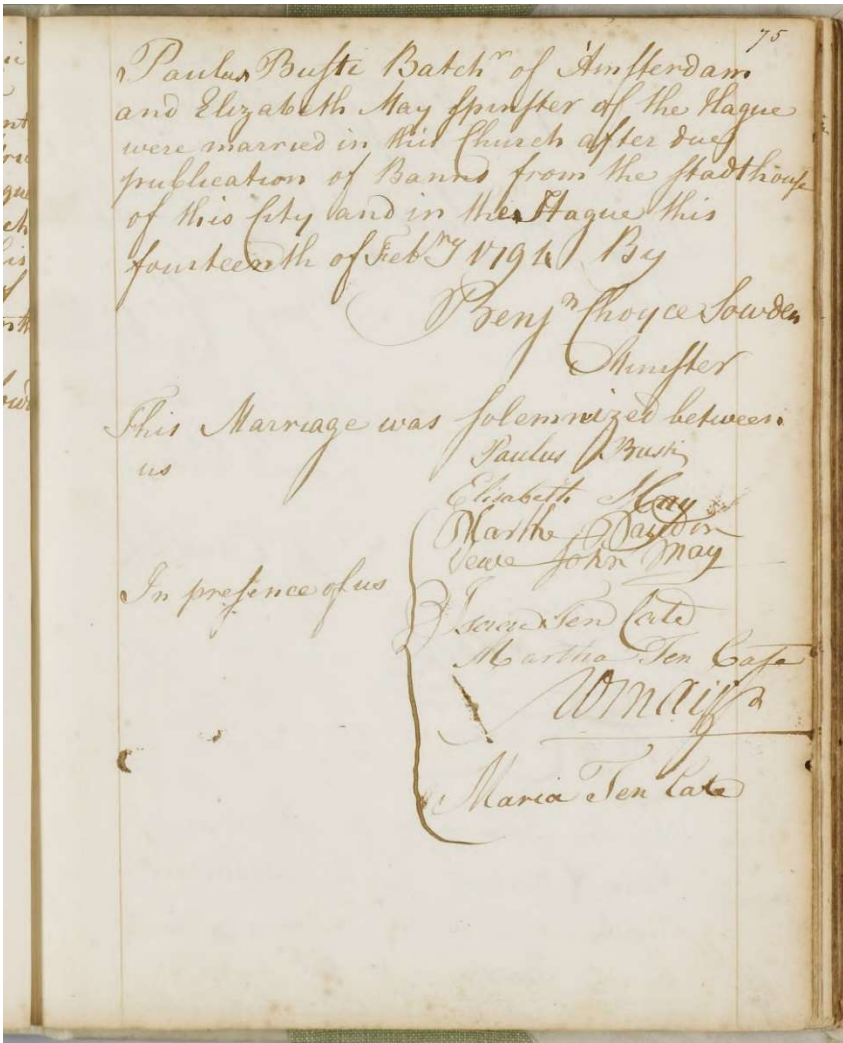 75
Paulus Busti Batchr of Amsterdam
and Elizabeth May Spinster of the Hague
were married in this Church after due
publication of Banns from the Stadthouse
of this City and in the Hague this
fourteenth of Febry 1794 By
Benjn Choyce Sowden
Minister
This Marriage was solemnized between
us Paulus Busti
Elisabeth May
Marthe
John May
In presence of us
Isaac Ten Cate
Martha Ten Cate
Maria Ten Cate